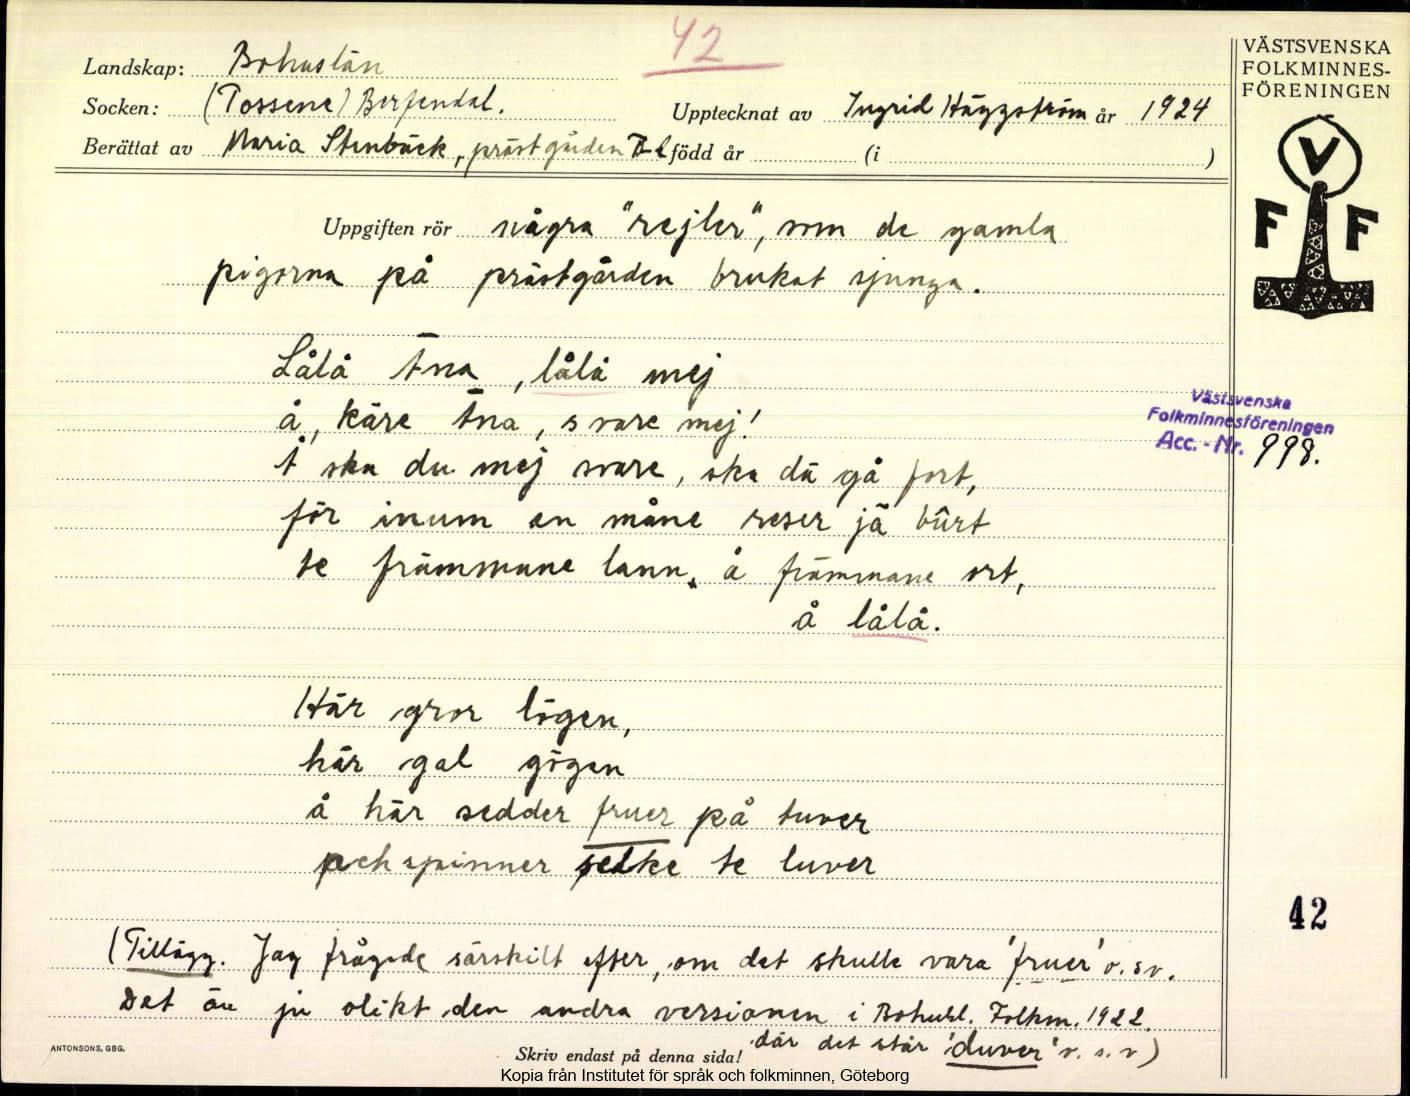 42
Landskap: Bohuslän
Socken: (Tossene) Berfendal.
Upptecknat av Ingrid Häggström år 1924
Berättat av Maria Stenbäck, prästgården född år (i )
Uppgiften rör några "rejler", som de gamla
pigorna på prästgården brukat sjunga.
Lålå Ana, lålå mej
å, käre Ana, svare mej!
Å ska du mej svare, ska dä gå fort,
för inum en måne reser jä bûrt
te främmane lann å främmane ort,
å lålå.
Här gror lögen,
här gal gögen
å här sedder fruer på tuver
och spinner selke te luver
(Tillägg. Jag frågade särskilt efter, om det skulle vara 'fruer' o.s.v.
Det är ju olikt den andra versionen i Bohusl. Folkm. 1922.
där det står 'duver' o.s.v)
ANTONSONS, GBG.
Skriv endast på denna sida!
Kopia från Institutet för språk och folkminnen, Göteborg
VÄSTSVENSKA
FOLKMINNES-
FÖRENINGEN
V
F F
Västsvenska
Folkminnesföreningen
Acc. - Nr. 998.
42